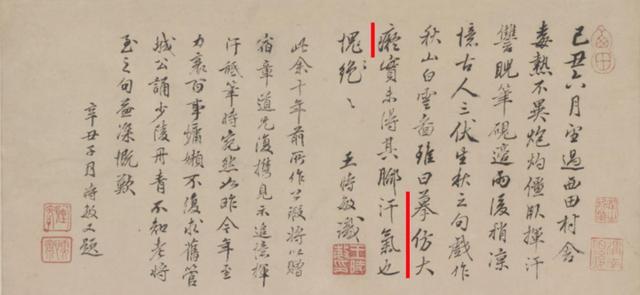 己丑六月望過西田村舍
毒熱不異炮灼僵臥揮汗
讐睨筆硯迨雨後稍涼
憶古人三伏生秋之句戲作
秋山白雲圖雖曰摹仿大
癡實未得其腳汗氣也
愧絕〻 王時敏識
此余十年前所作公瑕將以贈
宿章道兄復攜見示追憶揮
汗舐筆時宛然如昨今年至
力衰百事慵嬾不復求舊管
城公誦少陵丹青不知老將
至之句益深慨歎
辛丑子月時敏又題